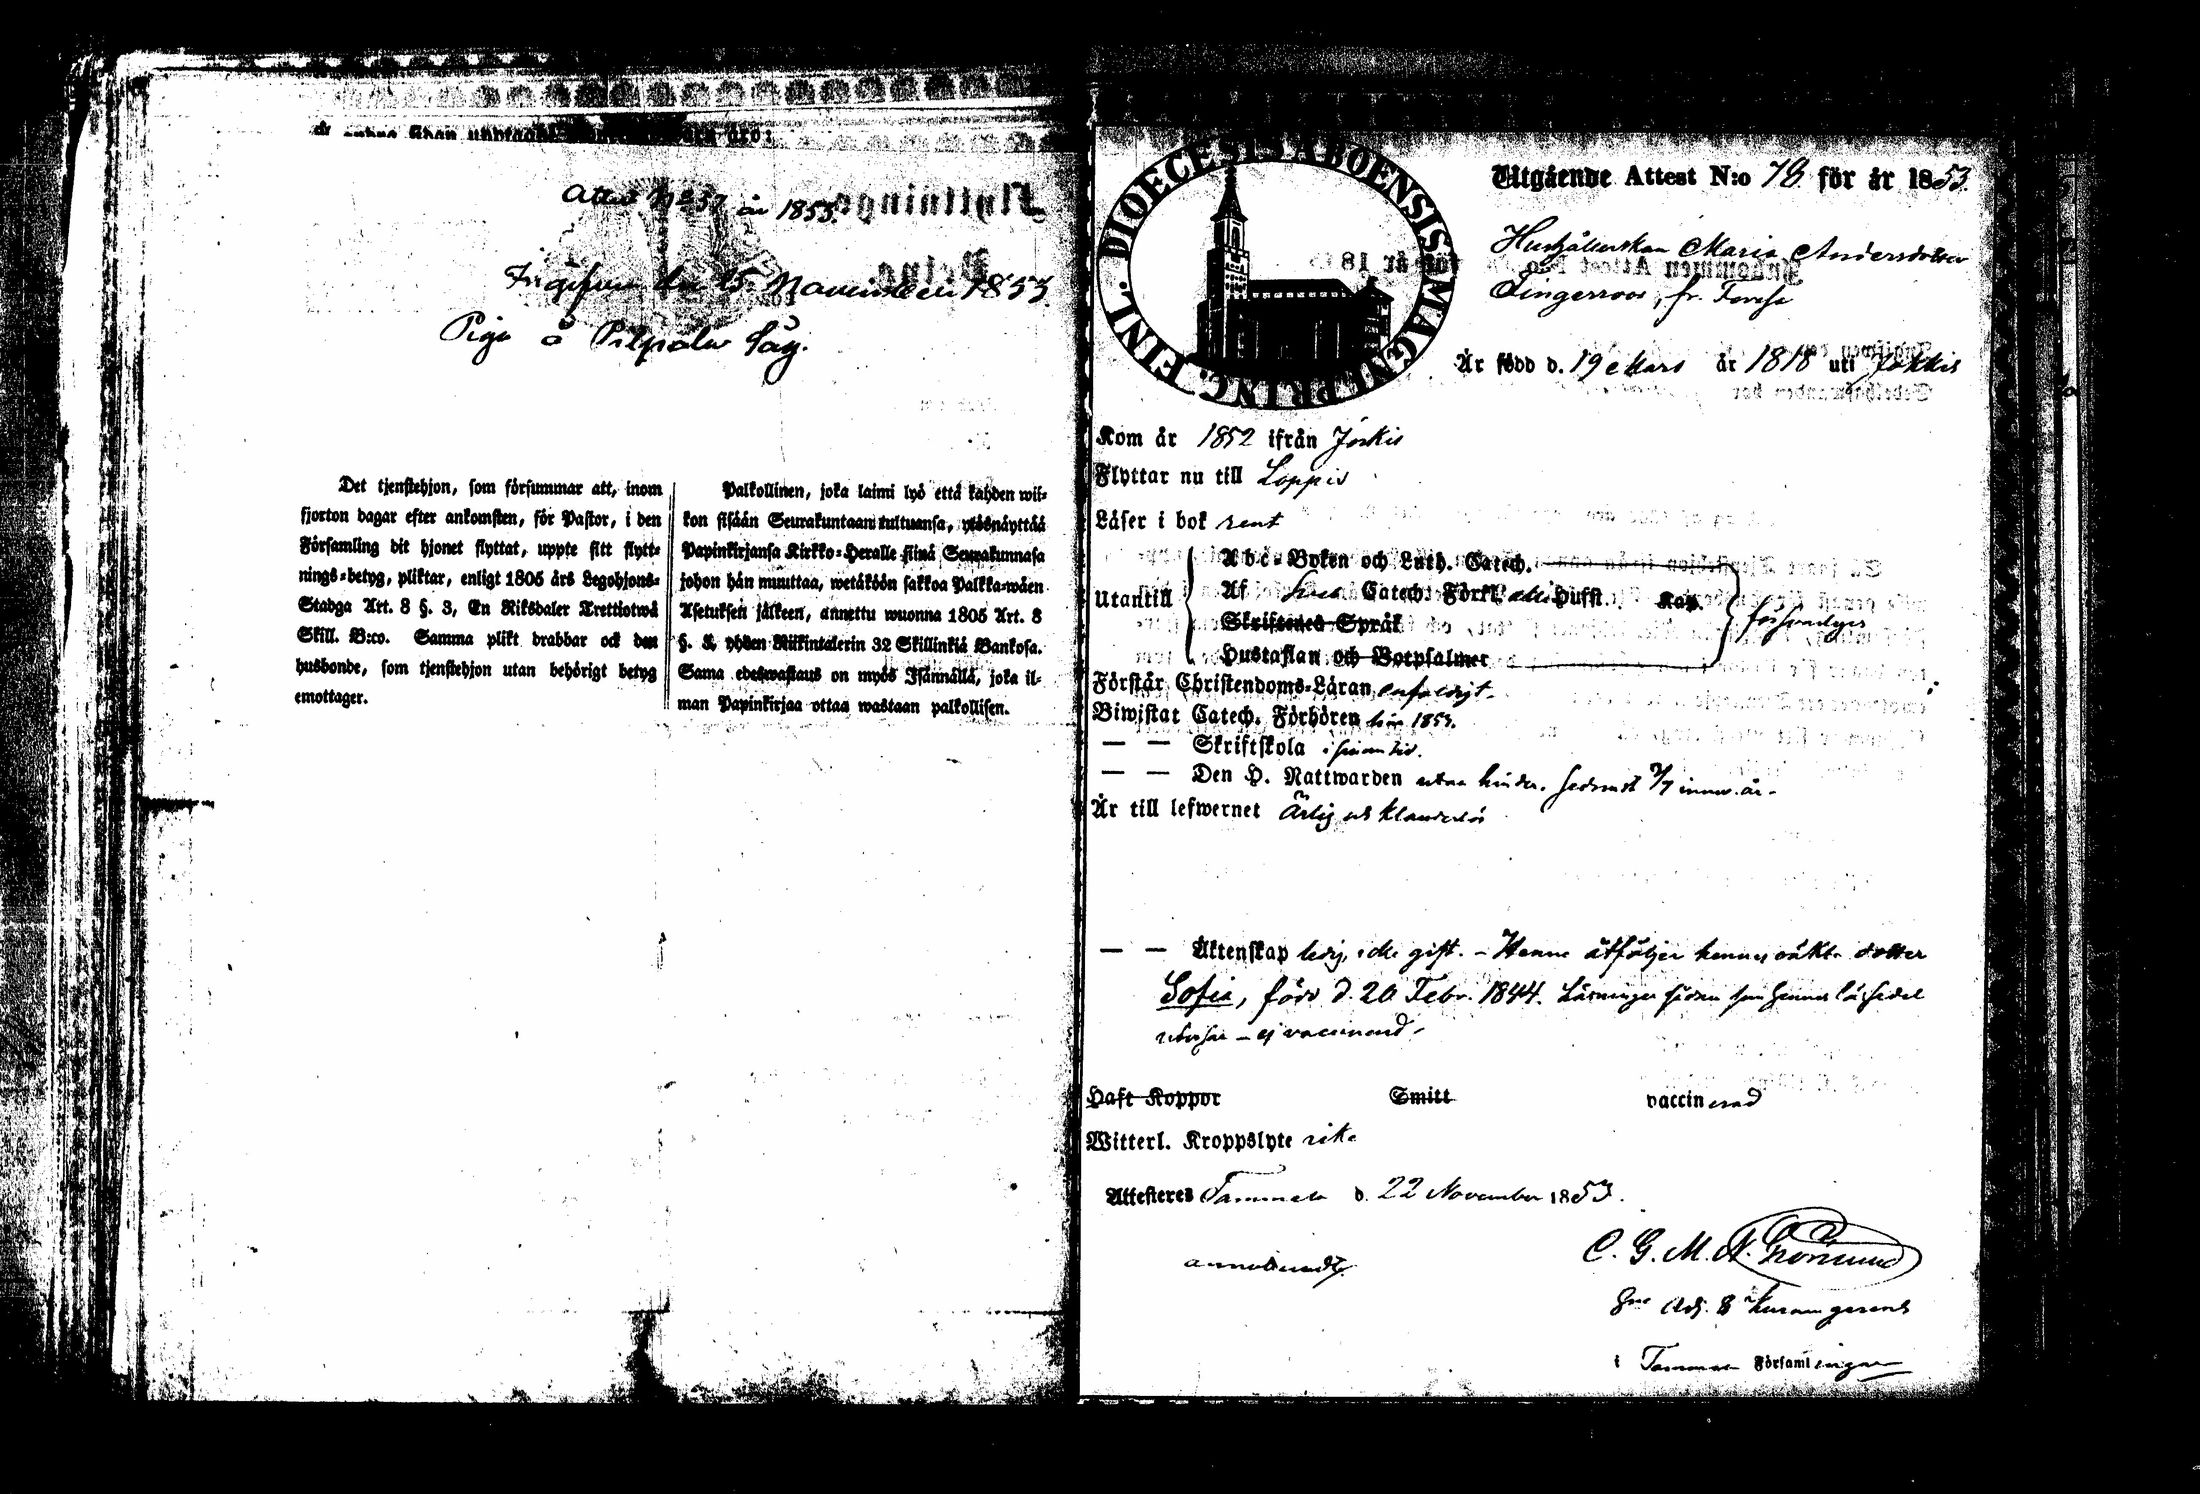 Attest No 37 år 1853.
Ingifven den 25 November 1853
Piga å Pilpala Såg.
Det tjenstehjon, som försummar att, inom
fjorton dagar efter ankomsten, för Pastor, i den
Församling dit hjonet flyttat, uppte sitt flytt-
nings-betyg, pliktar, enligt 1805 års Legohjons-
Stadga Art. 8 §. 3, En Riksdaler Trettiotwå
Skill. B:co. Samma plikt drabbar ock den
husbonde, som tjenstehjon utan behörigt betyg
emottager.
Palkollinen, joka laimi lyö että kahden wii-
kon sisään Seurakuntaan tultuansa, ylösnäyttää
Papinkirjansa Kirkko-Heralle siinä Seurakunnasa
johon hän muuttaa, wetäköön sakkoa Palkka-wäen
Asetuksen jälkeen, annettu wuonna 1805 Art. 8
§. 3, yhden Riikintalerin 32 Skillinkiä Bankosa.
Sama edeswastaus on myös Isännällä, joka il-
man Papinkirjaa ottaa wastaan palkollisen.
DIOECESIS ABOENSIS MAGNI PRINC. FINL.
Utgående Attest N:o 78 för år 1853.
Maria Andersdotter
fr. Torfsa
Är född d. 19 Mars år 1818 uti Jokkis
Kom år 1852 ifrån Jockis
Flyttar nu till Loppis
Läser i bok rent
Utantill
Abc-Boken och Luth. Catech.
Af Svea Catech. Förkl. Hufst. Kap.
Skriftenes Språk
Hustaflan och Botpsalmer
försvarligen
Förstår Christendoms-Läran enfaldigt.
Biwistat Catech. Förhören här 1853.
— — Skriftskola i sinom tid.
— — Den H. Nattwarden utan hinder. sednast 3/7 innew. år.
Är till lefwernet Ärlig och Klanderlös
— — Äktenskap ledig, icke gift. – Henne åtföljer hennes oäkta dotter
Sofia, född d. 20 Febr. 1844.
utvisar – ej vaccinerad.
Haft Koppor Smitt vaccinerad
Witterl. Kroppslyte icke
Attesteres Tammela d. 22 November 1853.
C. G. M. N.
i Tammela Församlingar